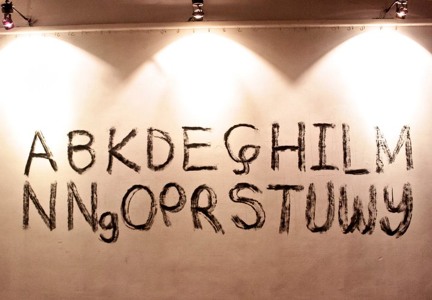 ABKDEGHILM
NNgOPRSTUWY